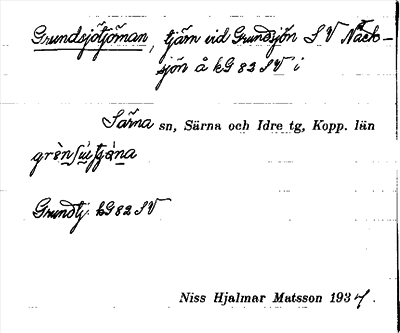 Grundsjötjörnan, tjärn vid Grundsjön SV Näck-
sjön å kG 82 SV i
Särna sn, Särna och Idre tg, Kopp. län
Grundtj. kG 82 SV
Niss Hjalmar Matsson 1937.